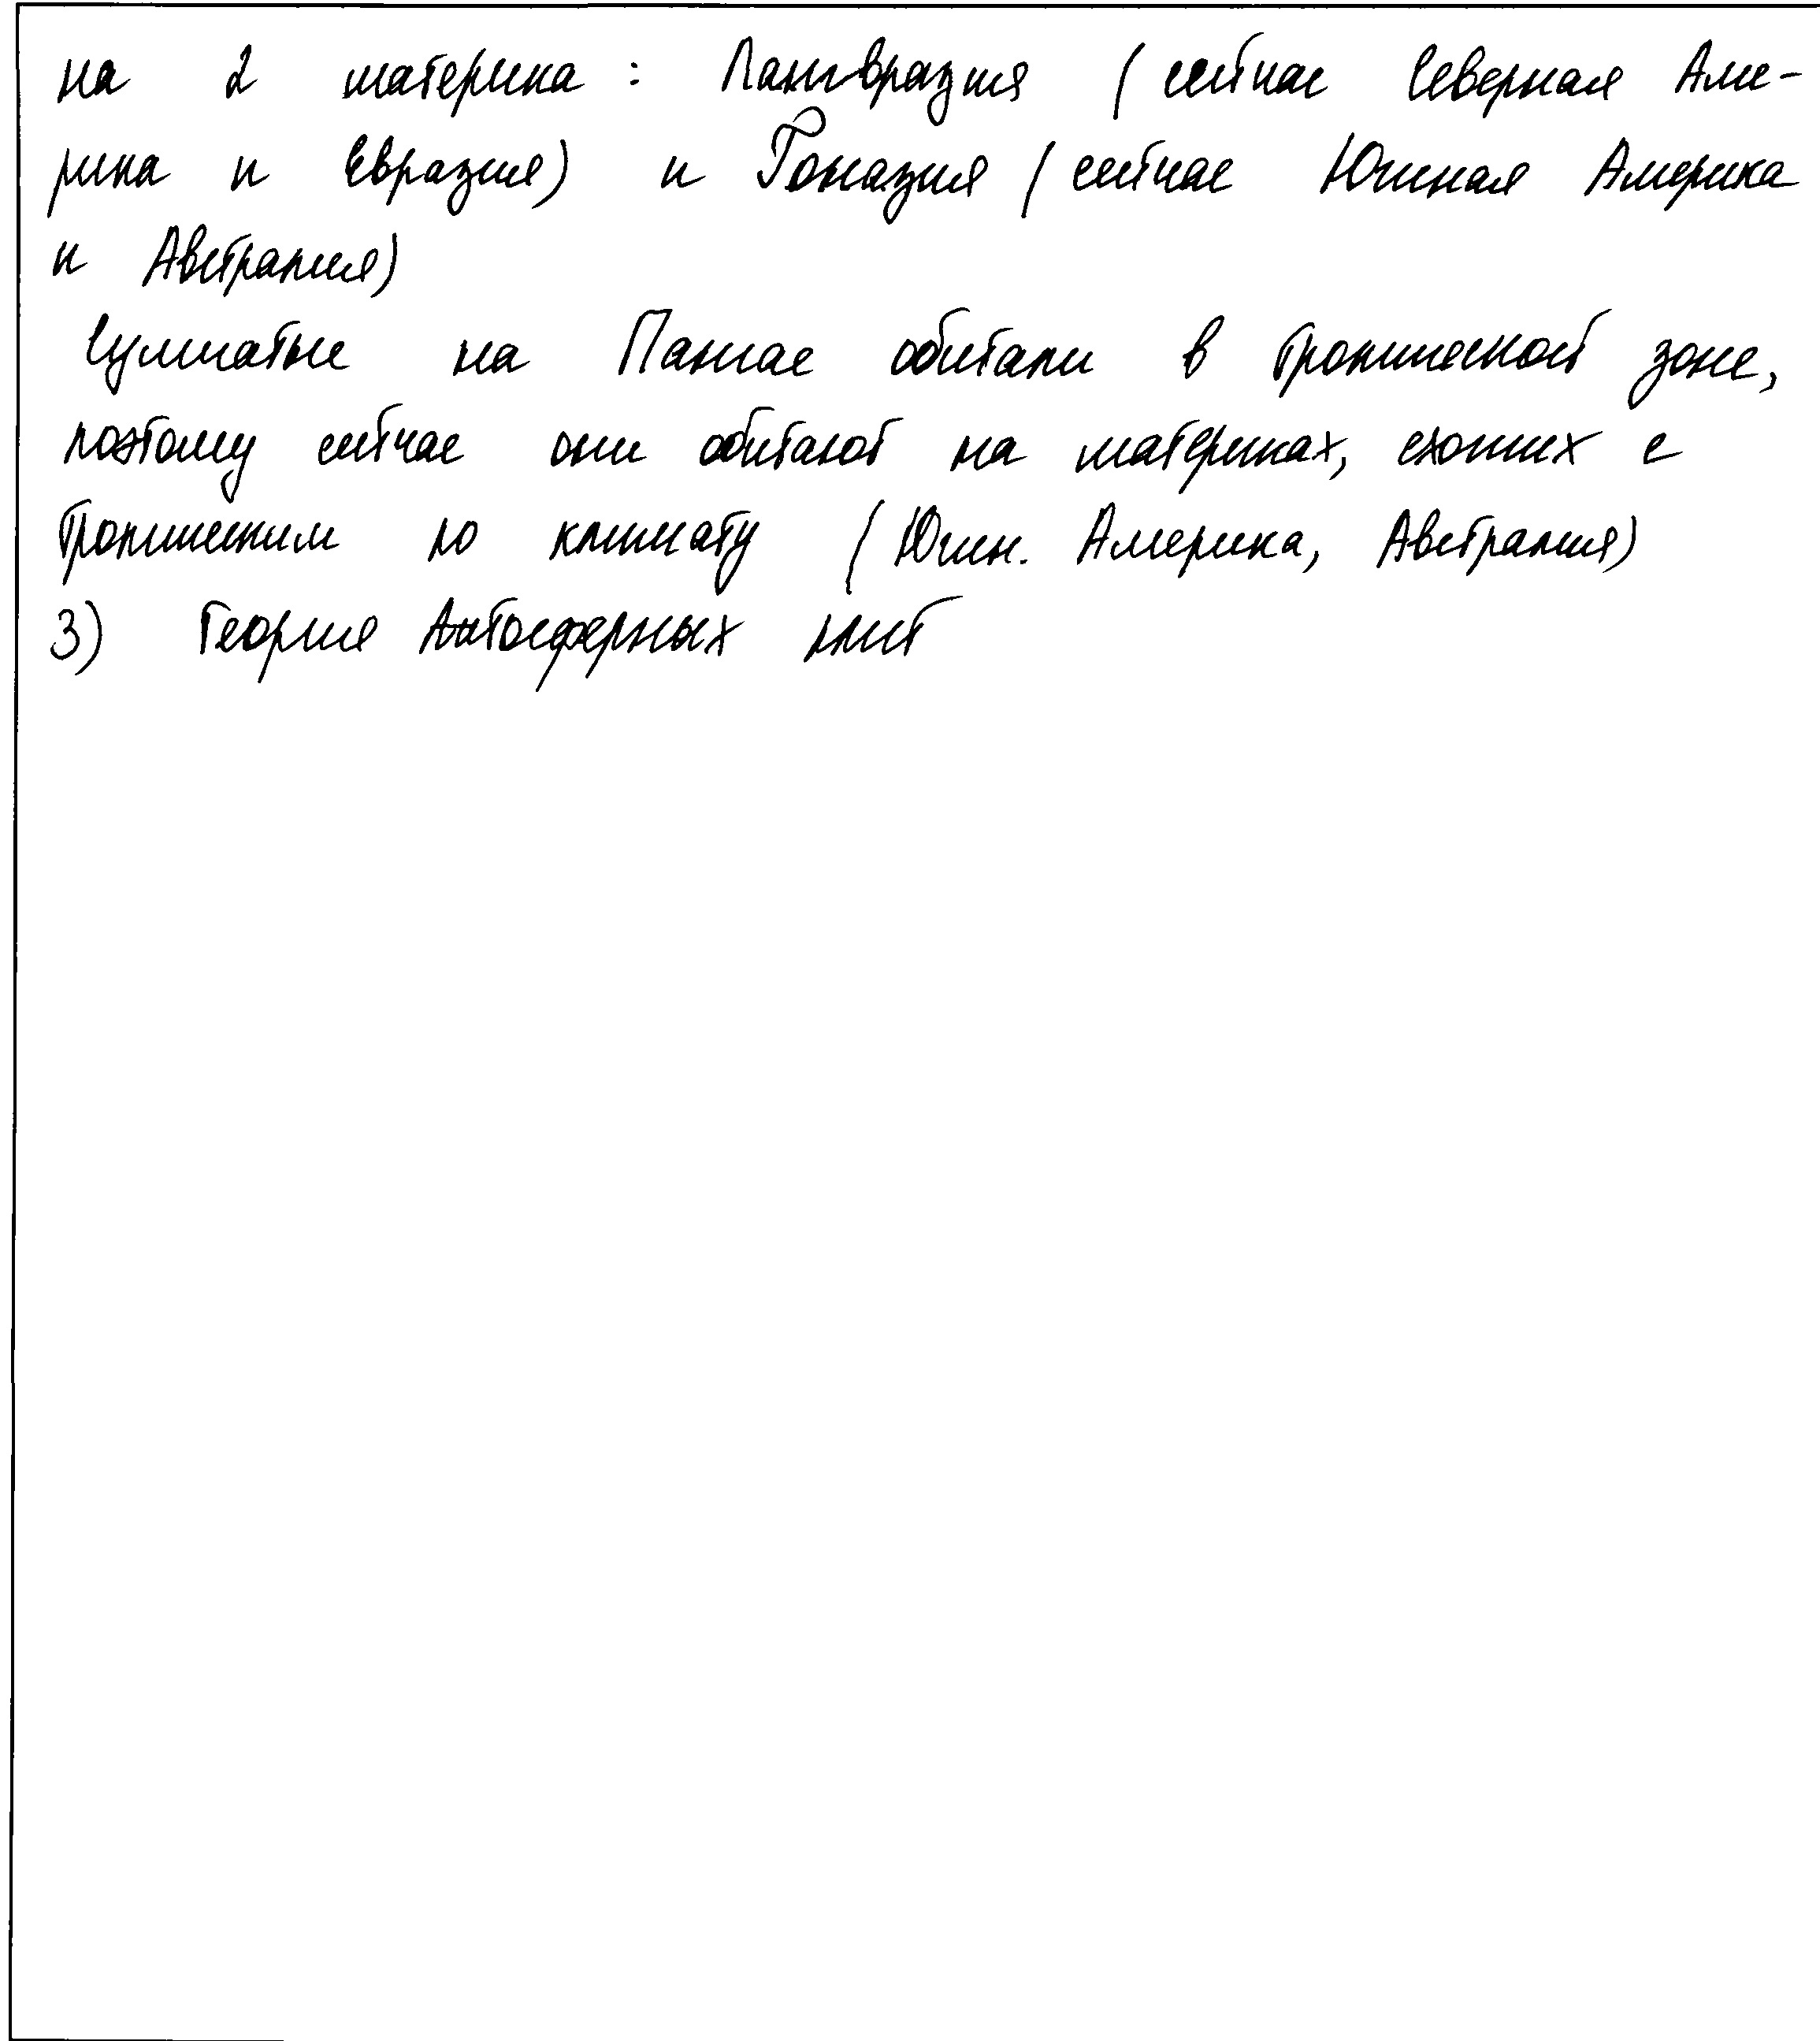 на 2 материка : Лангвразия (сейчас Северная Аме-
рика и Евразия) и Гоназия (сейчас Южная Америка
и Австралия)
Сумчатые на Пангае обитали в тропической зоне,
поэтому сейчас они обитают на материках, схожих с
тропическим по климату (Южн. Америка, Австралия)
3) Теория Литосферных плит